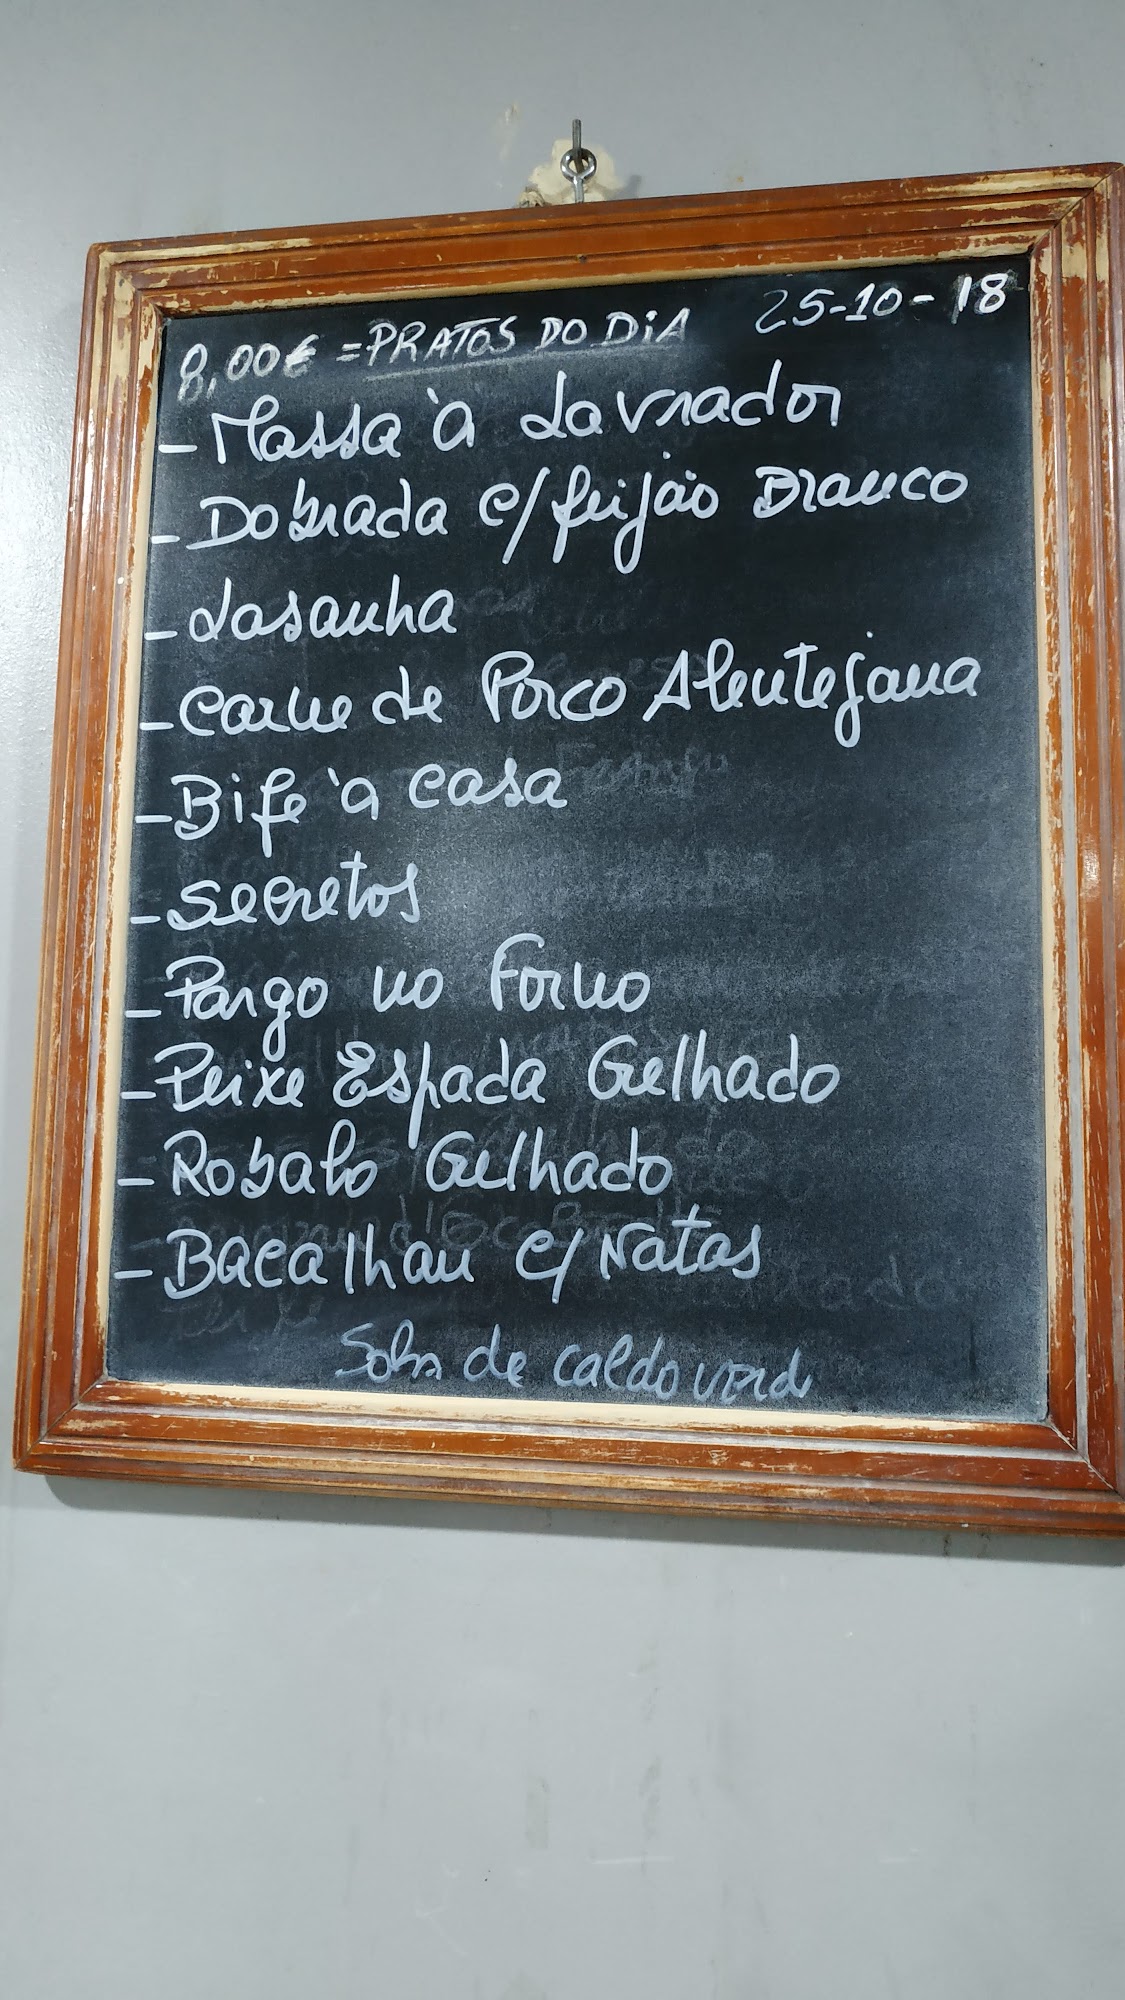 8,00€ = PRATOS DO DIA 25-10-18
- Massa à Lavrador
- Dobrada c/ feijão Branco
- Lasanha
- Carne de Porco Alentejana
- Bife à Casa
- Secretos
- Pargo no Forno
- Peixe Espada Grelhado
- Robalo Grelhado
- Bacalhau c/ Natas
Sopa de caldo verde